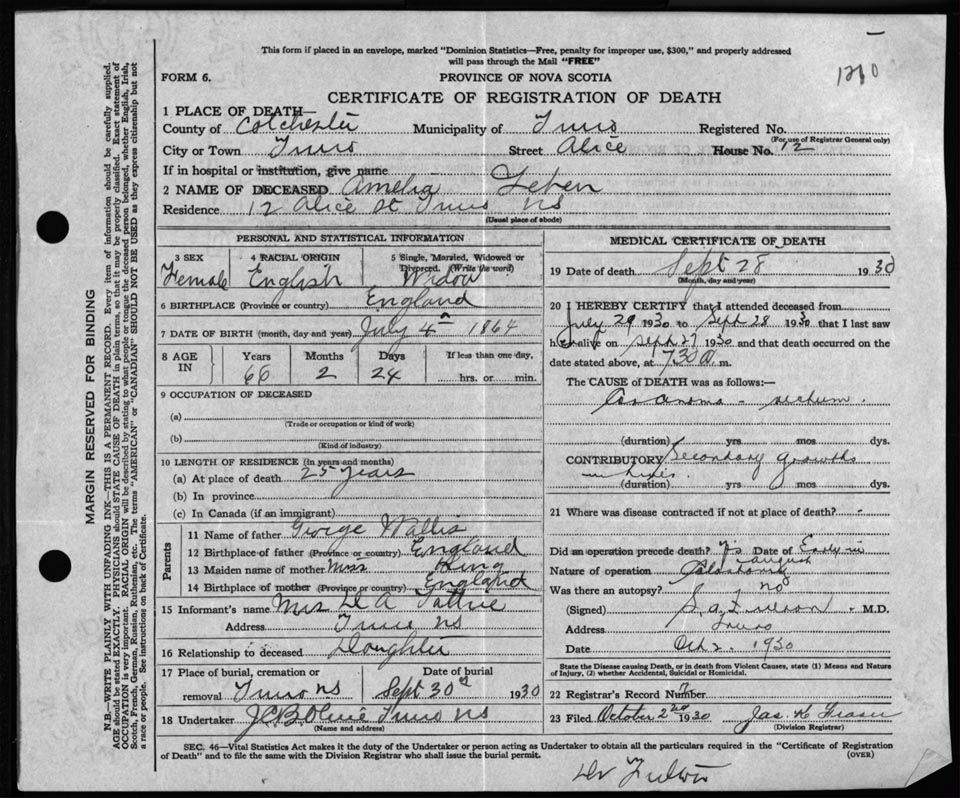 This form if placed in an envelope, marked "Dominion Statistics—Free, penalty for improper use, $300," and properly addressed
will pass through the Mail "FREE"
1210
FORM 6. PROVINCE OF NOVA SCOTIA
CERTIFICATE OF REGISTRATION OF DEATH
1 PLACE OF DEATH—
County of Colchester Municipality of Truro Registered No.
(For use of Registrar General only)
City or Town Truro Street Alice House No. 12
If in hospital or institution, give name
2 NAME OF DECEASED Amelia
Residence 12 Alice St Truro NS
(Usual place of abode)
PERSONAL AND STATISTICAL INFORMATION
3 SEX 4 RACIAL ORIGIN 5 Single, Married, Widowed or Divorced. (Write the word)
Female English Widow
6 BIRTHPLACE (Province or country) England
7 DATE OF BIRTH (month, day and year) July 4th 1864
8 AGE IN Years Months Days If less than one day,
66 2 24 hrs. or min.
9 OCCUPATION OF DECEASED
(a)
(Trade or occupation or kind of work)
(b)
(Kind of industry)
10 LENGTH OF RESIDENCE (in years and months)
(a) At place of death 25 years
(b) In province
(c) In Canada (if an immigrant)
Parents
11 Name of father George Wallis
12 Birthplace of father (Province or country) England
13 Maiden name of mother Miss King
14 Birthplace of mother (Province or country) England
15 Informant's name Mrs
Address Truro NS
16 Relationship to deceased Daughter
17 Place of burial, cremation or removal Truro NS Date of burial Sept 30th 1930
18 Undertaker Truro NS
(Name and address)
MEDICAL CERTIFICATE OF DEATH
19 Date of death Sept 28 1930
(Month, day and year)
20 I HEREBY CERTIFY that I attended deceased from
July 29 1930 to Sept 28 1930 that I last saw
her alive on Sept 27 1930 and that death occurred on the
date stated above, at 7 30 a m.
The CAUSE of DEATH was as follows:—
Carcinoma - rectum.
(duration) yrs mos dys.
CONTRIBUTORY Secondary growths
in liver.
(duration) yrs mos dys.
21 Where was disease contracted if not at place of death? -
Did an operation precede death? Yes Date of Early in August
Nature of operation Colostomy
Was there an autopsy? no
(Signed) M.D.
Address Truro
Date Oct 2. 1930
State the Disease causing Death, or in death from Violent Causes, state (1) Means and Nature
of Injury, (2) whether Accidental, Suicidal or Homicidal.
22 Registrar's Record Number
23 Filed October 2nd 1930 Jas. H Fraser
(Division Registrar)
SEC. 46—Vital Statistics Act makes it the duty of the Undertaker or person acting as Undertaker to obtain all the particulars required in the "Certificate of Registration
of Death" and to file the same with the Division Registrar who shall issue the burial permit.
(OVER)
Dr Fulton
MARGIN RESERVED FOR BINDING
N.B.—WRITE PLAINLY WITH UNFADING INK—THIS IS A PERMANENT RECORD. Every item of information should be carefully supplied.
AGE should be stated EXACTLY. PHYSICIANS should STATE CAUSE OF DEATH in plain terms, so that it may be properly classified. Exact statement of
OCCUPATION is very important. RACIAL ORIGIN will be described by stating to what people or tongue the deceased person belonged, whether English, Irish,
Scotch, French, German, Russian, Ruthenian, etc. The terms "AMERICAN" or "CANADIAN" SHOULD NOT BE USED as they express citizenship but not
a race or people. See instructions on back of Certificate.